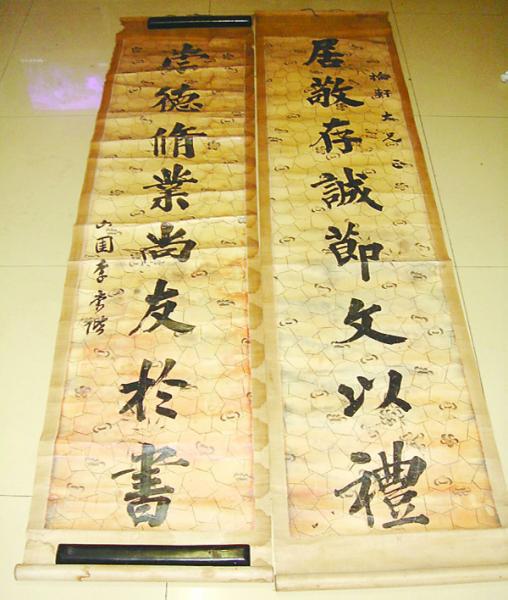 軒大兄正
居敬存誠節文以禮
崇德脩業尚友於書
李